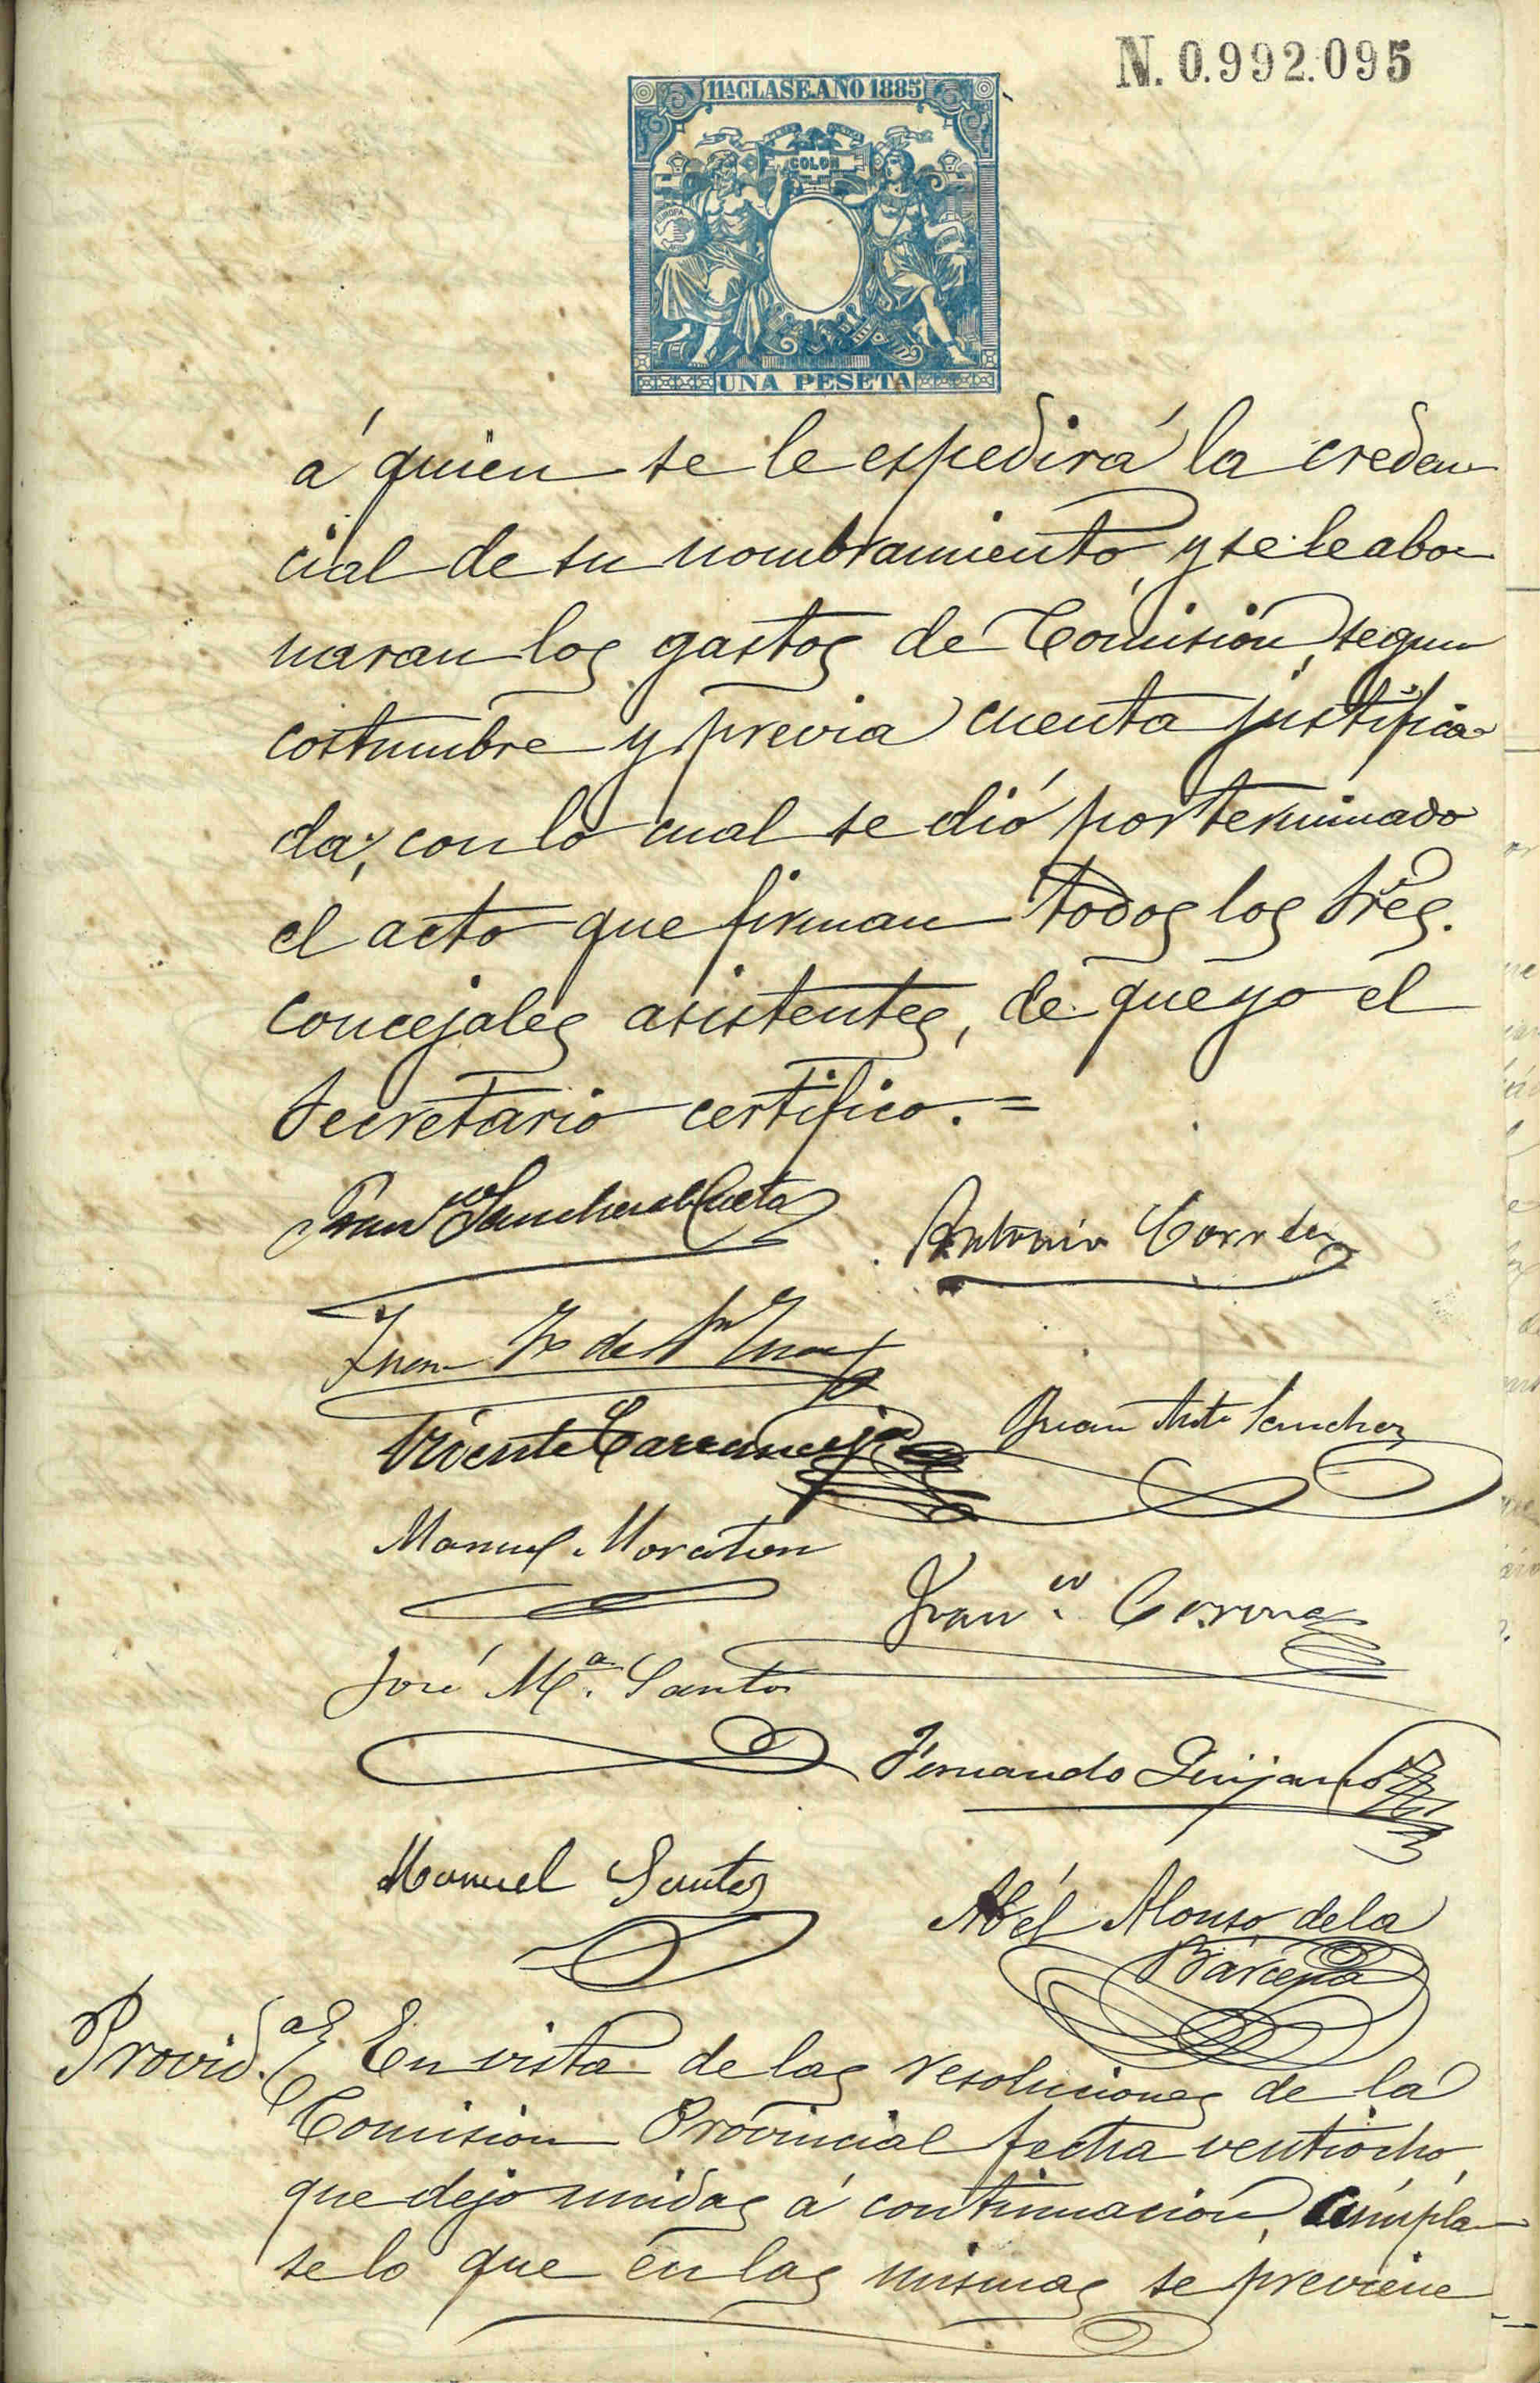 N. 0.992.095
11ª CLASE. AÑO 1885
COLON
EUROPA
UNA PESETA
á quien se le espedirá la creden
cial de su nombramiento, y se le abo
naran los gastos de Comisión, segun
costumbre y previa cuenta justifica
da; con lo cual se dió por terminado
el acto que firman todos los Sres.
concejales asistentes, de que yo el
Secretario certifico. =
Franco Sanchez de Cueto
Antonio Corrder
Juan
Vicente Carranceja
Juan Anto Sanchez
Manuel Moraton
Franco Corona
José Mª. Santos
Fernando Quijano
Manuel Santos
Abél Alonso de la
Bárcena
Provid.ª En vista de las resoluciones de la
Comision Provincial fecha ventiocho,
que dejo unidas á continuación, cúmpla
se lo que en las mismas se previene